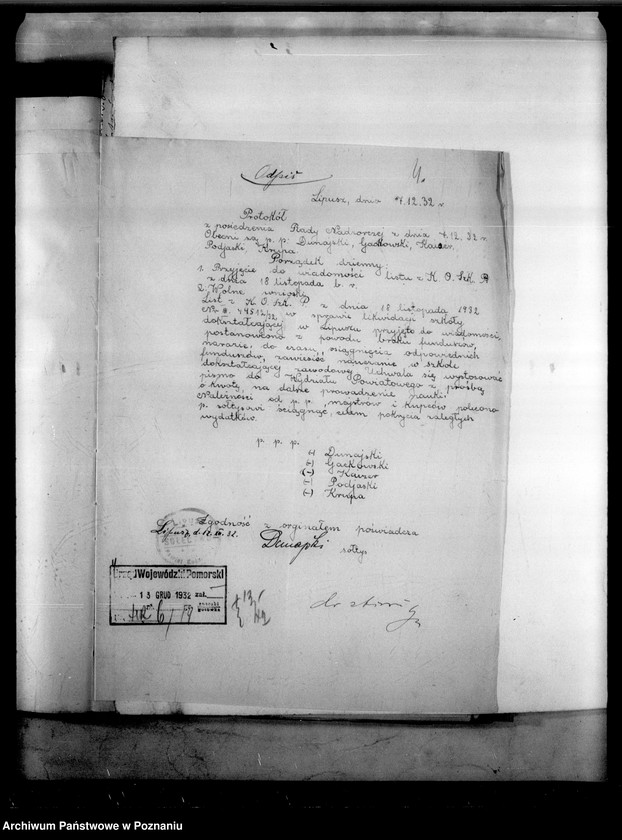 Odpis
4.
Lipusz, dnia 4.12.32 r.
Protokół
z posiedzenia Rady Nadzorczej z dnia 4.12.32 r.
Obecni są p. p. Dunajski, Gackowski, Kaiser,
Podjaski, Krupa.
Porządek dzienny
1. Przyjęcie do wiadomości listu z K. O. Szk. P
z dnia 18 listopada b. r.
2. Wolne wnioski
List z K. O. Szk. P z dnia 18 listopada 1932
w sprawie likwidacji szkoły
dokształcającej w Lipuszu przyjęto do wiadomości,
postanowiono z powodu braku funduszów,
narazie, do czasu osiągnięcia odpowiednich
funduszów, zawiesić nauczanie w szkole
dokształcającej zawodowej. Uchwala się wystosować
pismo do Wydziału Powiatowego z prośbą
o kwoty, na dalsze prowadzenie nauki.
Należności od p. p. majstrów i kupców polecono
p. sołtysowi ściągnąć, celem pokrycia zaległych
wydatków.
p. p. p.
(-) Dunajski
(-) Gackowski
(-) Kaiser
(-) Podjaski
(-) Krupa
Zgodność z orginałem poświadcza
Lipusz, d. 12. XII. 32.
Dunajski sołtys
Urząd Wojewódzki Pomorski
13 GRUD 1932 zał.
Archiwum Państwowe w Poznaniu